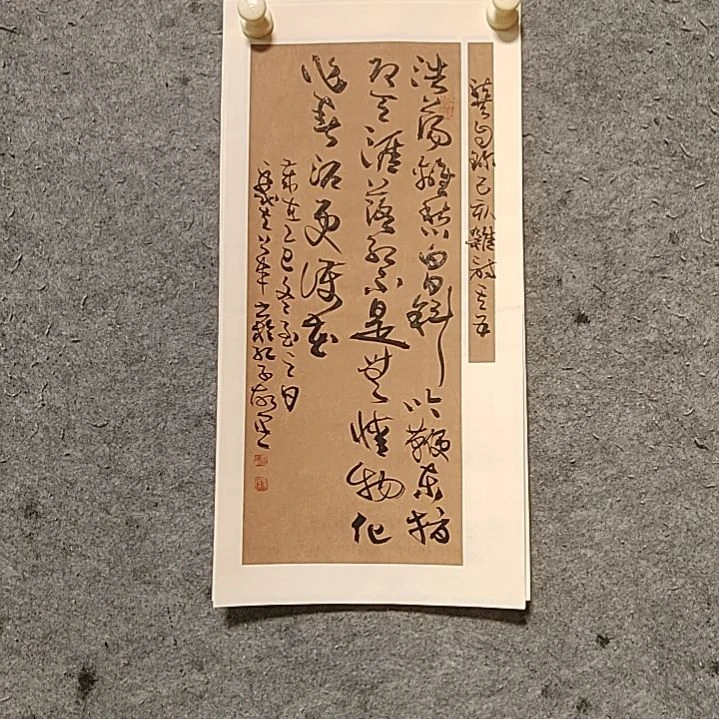 龔自珍己亥雜詩其五
浩蕩離愁白日斜吟鞭東指
即天涯落紅不是無情物化
作春泥更護花
歲在乙巳冬至之日